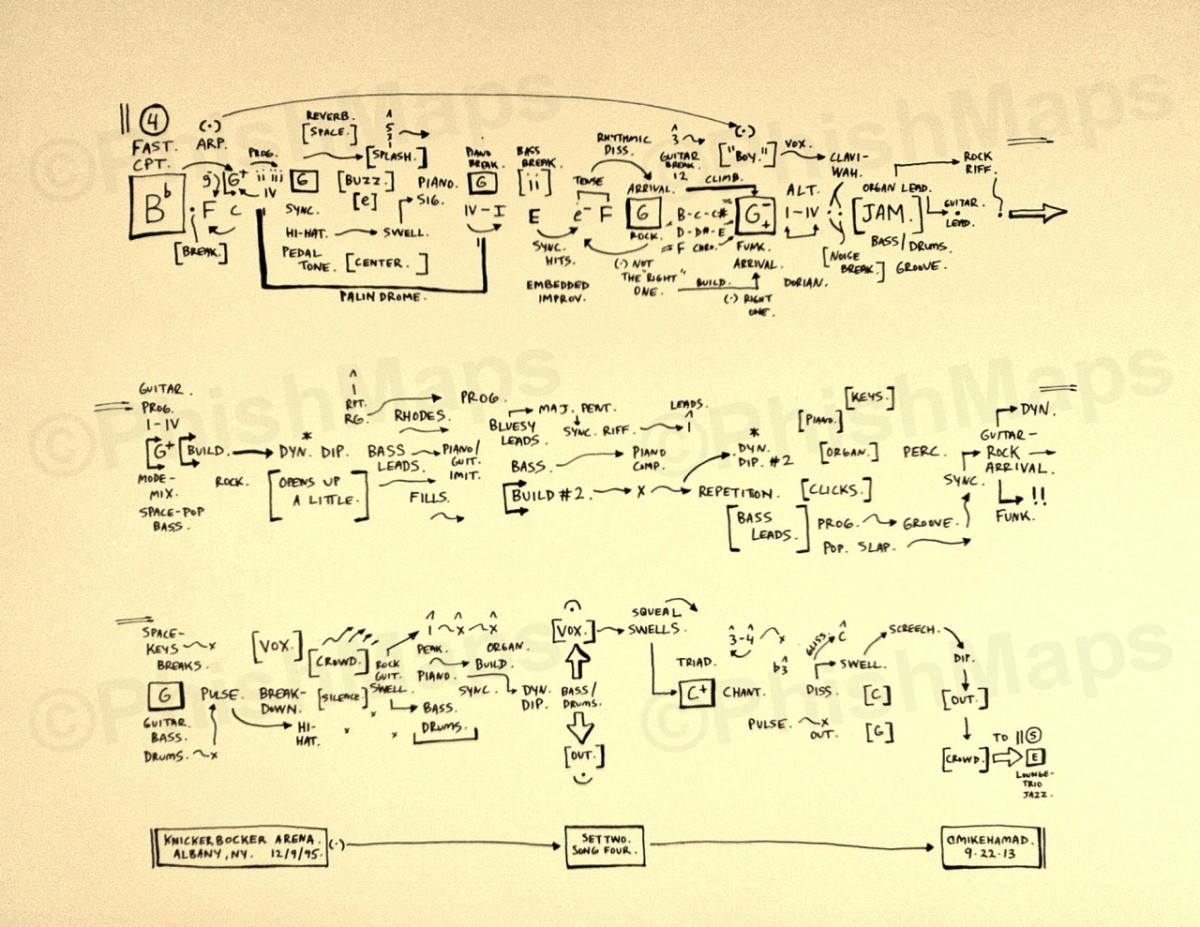 4
(·)
REVERB.
FAST.
CPT.
ARP.
PROG.
[SPACE.]
5
3
1
[SPLASH.]
PIANO
BREAK.
BASS
BREAK.
RHYTHMIC
DISS.
3
GUITAR
BREAK.
12
(·)
["BOY."]
VOX.
CLAVI-
WAH.
ROCK
RIFF.
Bb
F
C
G+
ii iii
IV
G
[BUZZ.]
[e]
PIANO.
SIG.
G
[ii]
TENSE
ARRIVAL.
CLIMB.
ALT.
ORGAN LEAD.
GUITAR.
LEAD.
[BREAK.]
SYNC.
HI-HAT.
SWELL.
IV-I
E
e- F
G
ROCK.
B-C-C#
D-D#-E
F CHRO.
G-+
FUNK.
ARRIVAL.
I-IV
[JAM.]
BASS/DRUMS.
GROOVE.
PEDAL
TONE.
[CENTER.]
SYNC.
HITS.
(·) NOT
THE "RIGHT"
ONE.
BUILD.
(·) RIGHT
ONE.
DORIAN.
[NOISE
BREAK.]
PALINDROME.
EMBEDDED
IMPROV.
GUITAR.
PROG.
I-IV
[G+
[BUILD.
MODE-
MIX.
SPACE-POP
BASS.
ROCK.
*
DYN. DIP.
[OPENS UP
A LITTLE.]
1
RPT.
RG.
RHODES.
PROG.
BASS
LEADS.
PIANO/
GUIT.
IMIT.
FILLS.
BLUESY
LEADS.
MAJ. PENT.
SYNC. RIFF.
LEADS.
1
BASS.
PIANO
COMP.
[BUILD #2.
X
*
DYN.
DIP. #2
REPETITION.
[KEYS.]
[PIANO.]
[ORGAN.]
[CLICKS.]
PERC.
[BASS
LEADS.]
PROG.
GROOVE.
POP. SLAP.
SYNC.
DYN.
GUITAR-
ROCK
ARRIVAL.
!!
FUNK.
SPACE-
KEYS
x
BREAKS.
G
PULSE.
GUITAR.
BASS.
DRUMS.
x
[VOX.]
BREAK-
DOWN.
HI-
HAT.
[CROWD.]
[SILENCE.]
ROCK
GUIT.
SWELL.
1
x
x
PEAK.
ORGAN.
BUILD.
PIANO.
SYNC.
DYN.
DIP.
BASS.
DRUMS.
[VOX.]
BASS/
DRUMS.
[OUT.]
SQUEAL
SWELLS.
TRIAD.
C+
3-4
x
b3
CHANT.
PULSE.
x
OUT.
GLISS.
C
SWELL.
DISS.
[C]
[G]
SCREECH.
DIP.
[OUT.]
[CROWD.]
TO
5
E
LOUNGE-
TRIO
JAZZ.
KNICKERBOCKER ARENA.
ALBANY, NY. 12/9/95.
(·)
SET TWO.
SONG FOUR.
@MIKEHAMAD.
9·22·13
©PhishMaps
©PhishMaps
©PhishMaps
©PhishMaps
©PhishMaps
©PhishMaps